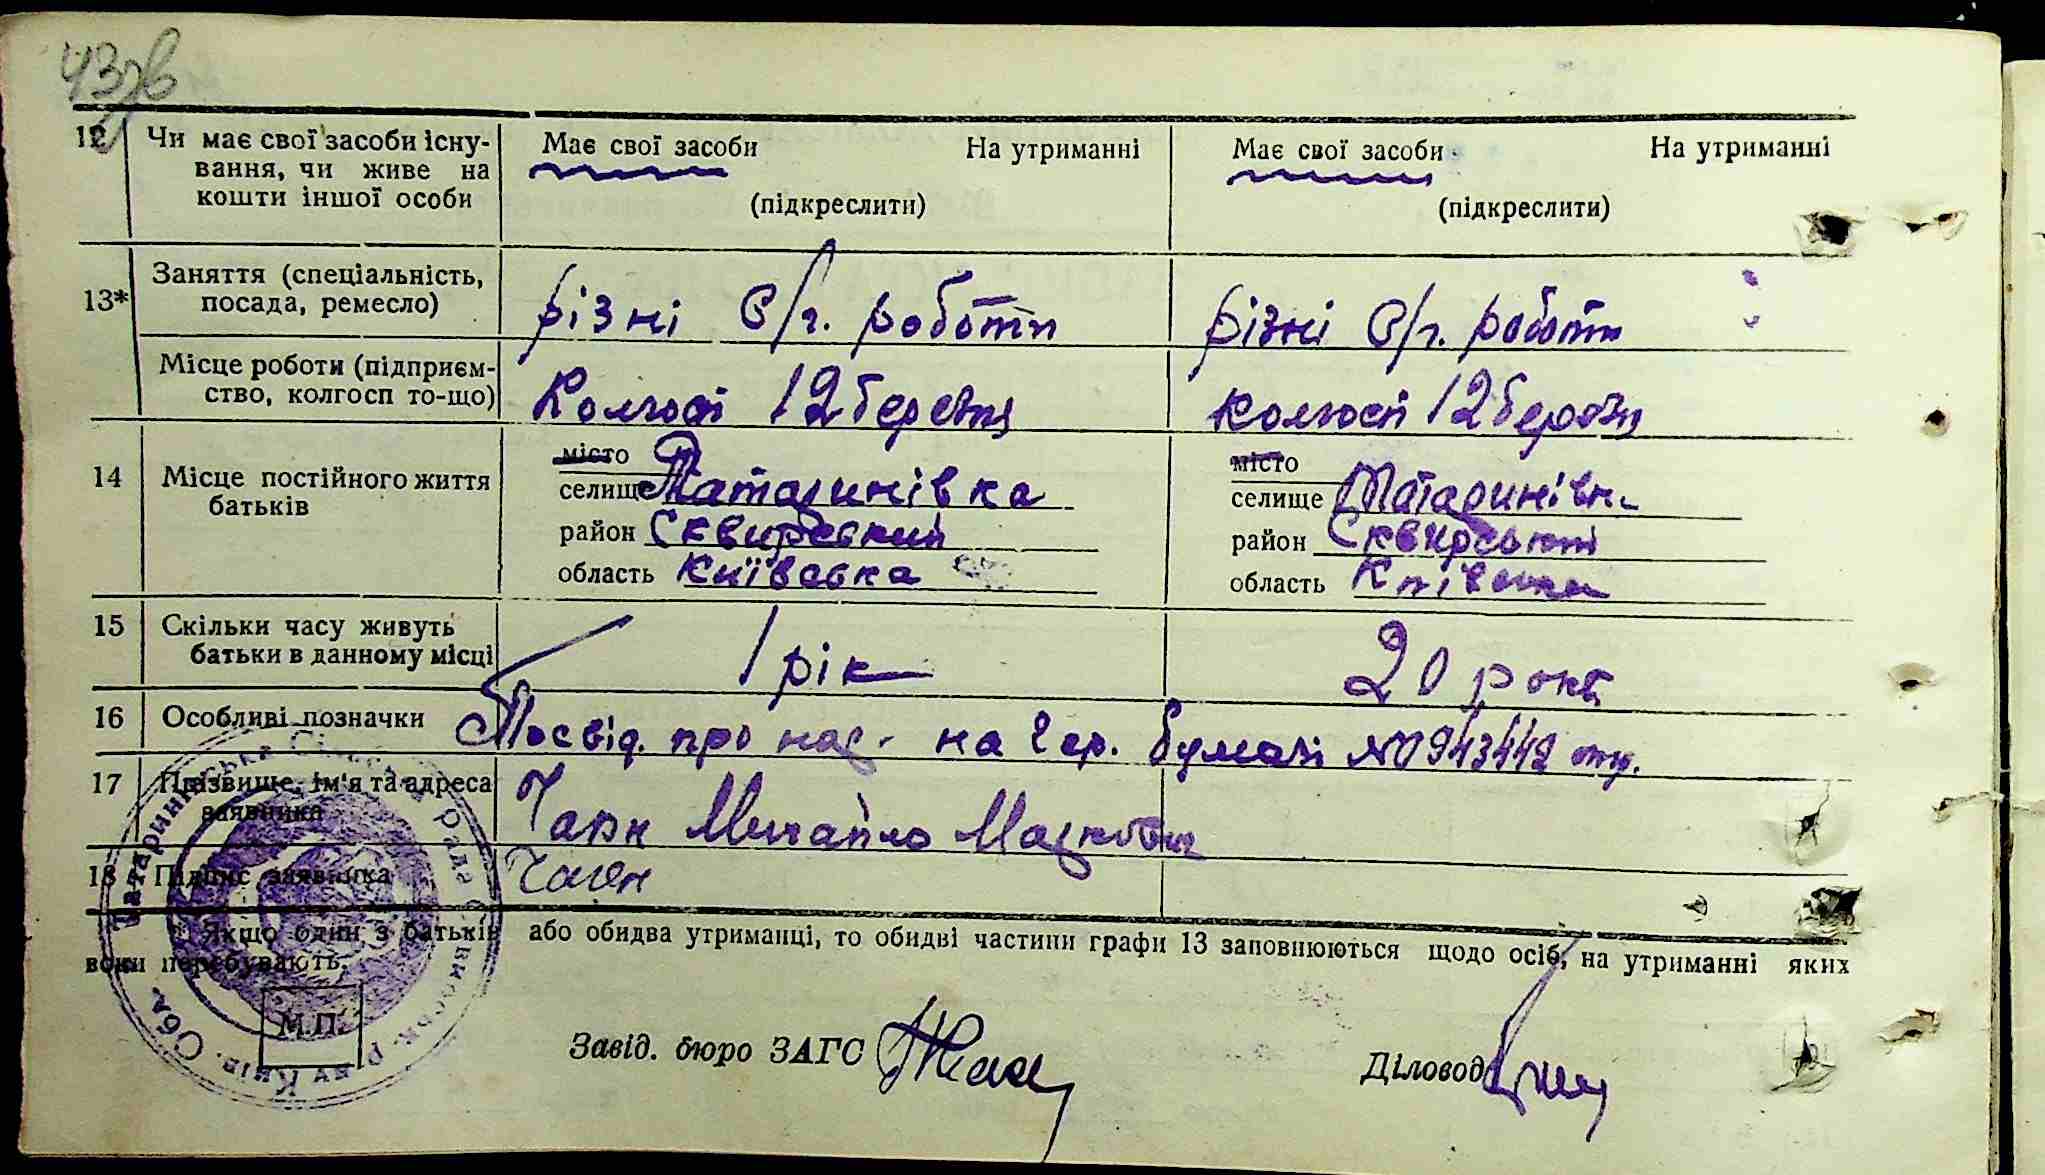 43зв
12 Чи має свої засоби існу- Має свої засоби На утриманні Має свої засоби На утриманні
вання, чи живе на
кошти іншої особи (підкреслити) (підкреслити)
13* Заняття (спеціальність,
посада, ремесло) різні с/г. роботи різні с/г. роботи
Місце роботи (підприєм-
ство, колгосп то-що) Колгосп 12 березня колгосп 12 березня
14 Місце постійного життя
батьків
місто місто
селище Татаринівка селище Татаринівка
район Сквирський район Сквирський
область Київська область Київська
15 Скільки часу живуть
батьки в данному місці 1 рік 20 років
16 Особливі позначки Посвід. про нар. на 2 ар. бумазі №0943442
17 Прізвище, ім'я та адреса
заявника Михайло Маркович
18 Підпис заявника
* Якщо один з батьків або обидва утриманці, то обидві частини графи 13 заповнюються щодо осіб, на утриманні яких
вони перебувають.
Татаринівська Сільська Рада Сквирськ. р-ну Київ. Обл.
М.П.
Завід. бюро ЗАГС
Діловод